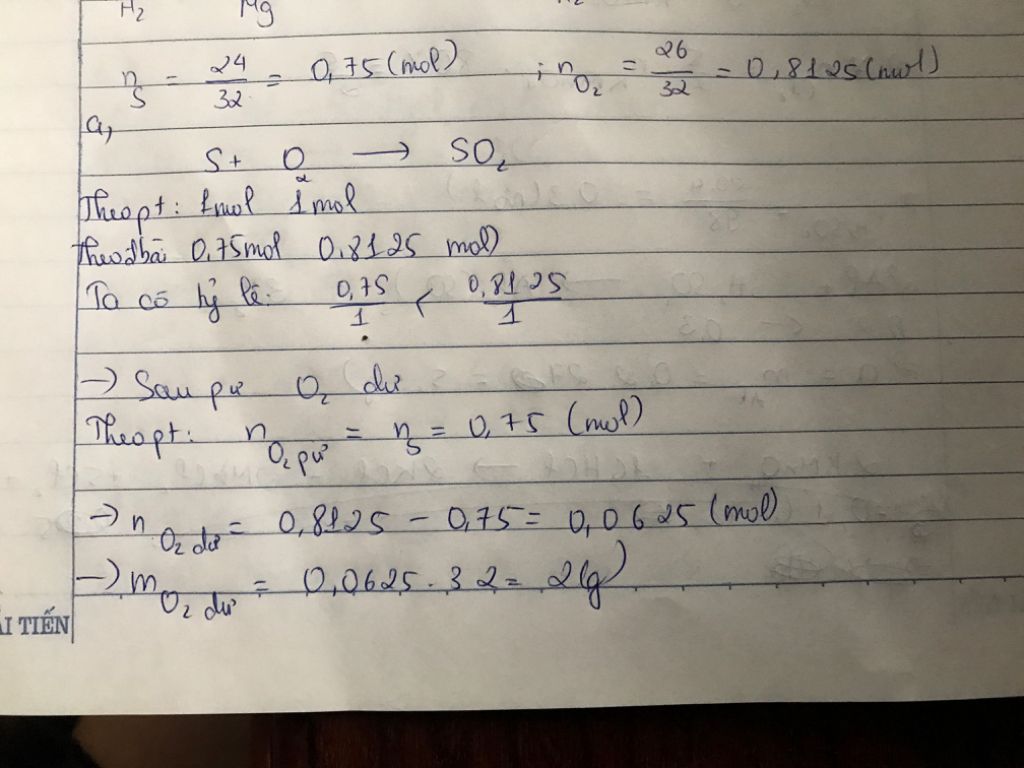 H2 Mg
nS = 24/32 = 0,75 (mol) ; nO2 = 26/32 = 0,8125 (mol)
a,
S + O2 → SO2
Theo pt: 1mol 1mol
theo đbài 0,75mol 0,8125 mol
Ta có tỷ lệ: 0,75/1 < 0,8125/1
→ Sau pư O2 dư
Theo pt: nO2 pư = nS = 0,75 (mol)
→ nO2 dư = 0,8125 - 0,75 = 0,0625 (mol)
→ mO2 dư = 0,0625 . 32 = 2(g)
ẢI TIẾN